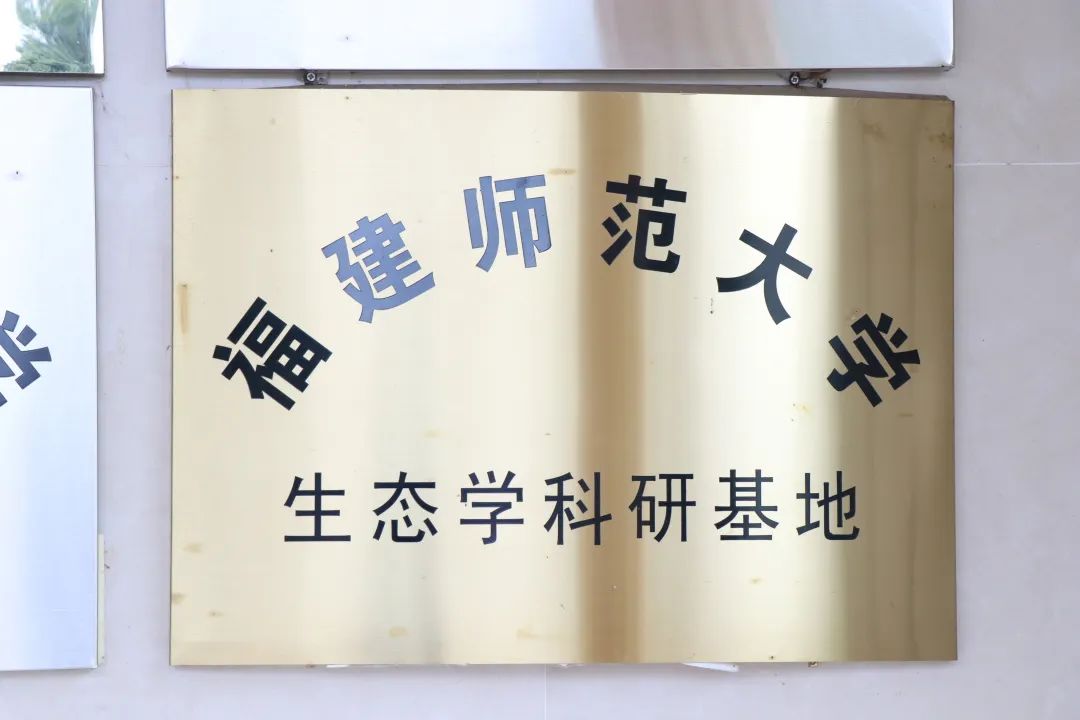 福建师范大学
生态学科研基地